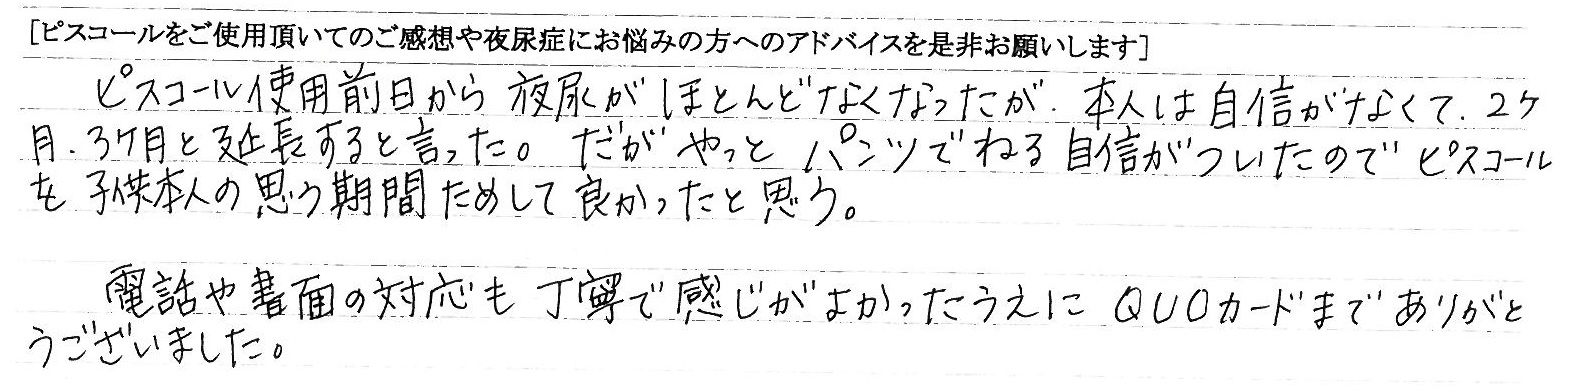 [ピスコールをご使用頂いてのご感想や夜尿症にお悩みの方へのアドバイスを是非お願いします]
ピスコール使用前日から夜尿がほとんどなくなったが、本人は自信がなくて、2ケ
月、3ケ月と延長すると言った。だがやっとパンツでねる自信がついたのでピスコール
を子供本人の思う期間ためして良かったと思う。
電話や書面の対応も丁寧で感じがよかったうえにQUOカードまでありがと
うございました。